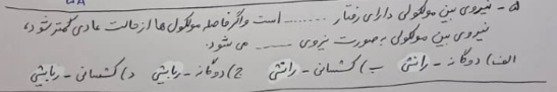 ۵ - نیروی بین مولکولی دارای رفتار ........ است و اگر فاصله مولکول ها از حالت عادی کمتر شود،
نیروی بین مولکولی به صورت نیروی ........ می شود.
الف) دوگانه - رانشی ب) کشسانی - رانشی ج) دوگانه - ربایشی د) کشسانی - ربایشی